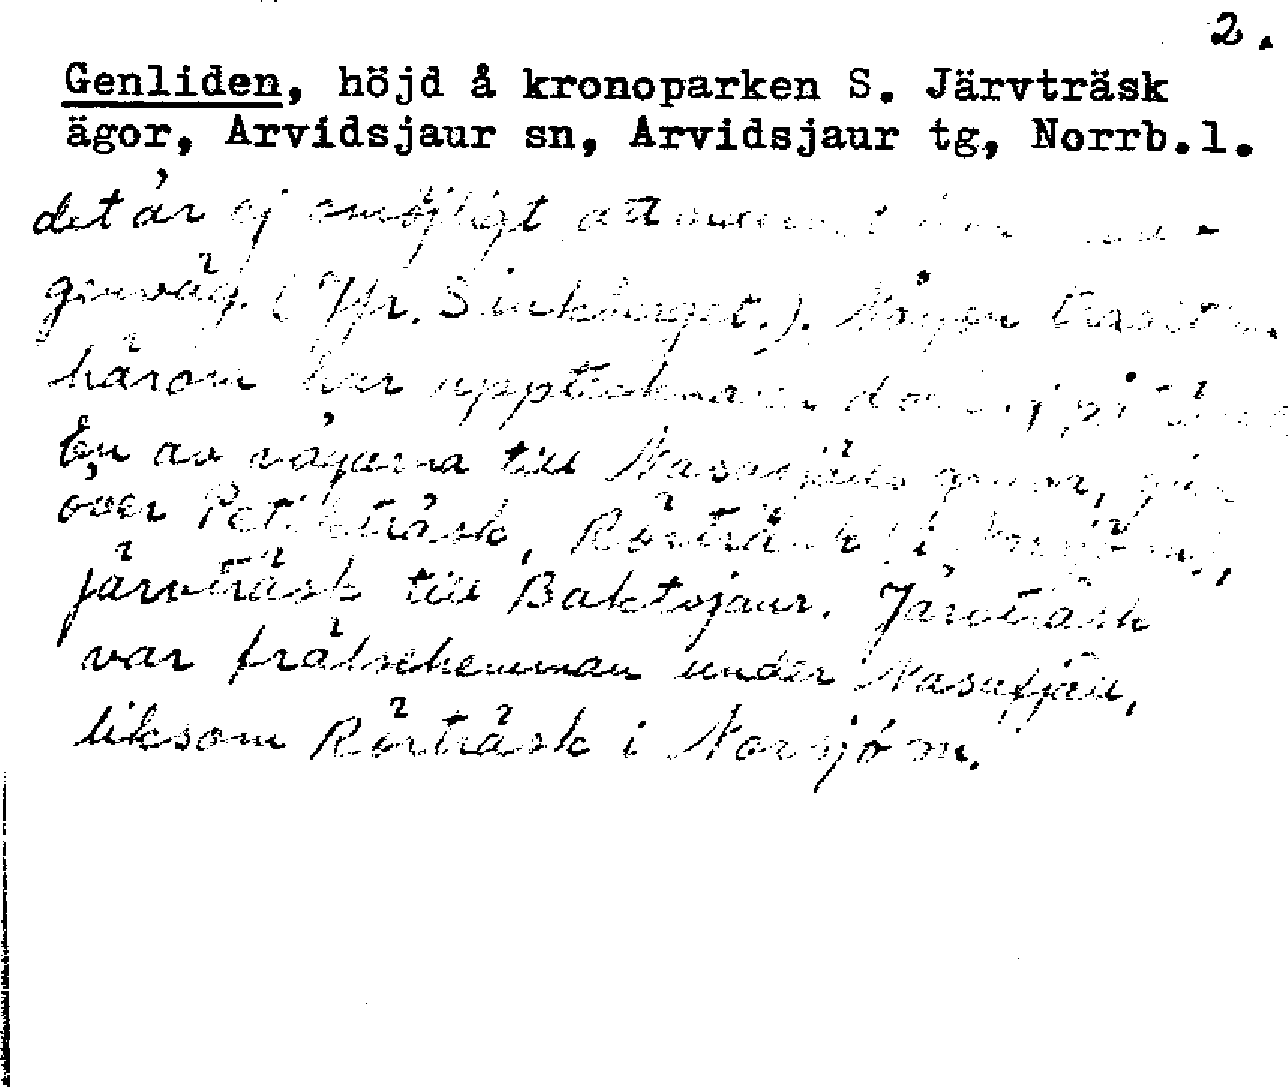 2.
Genliden, höjd å kronoparken S. Järvträsk
ägor, Arvidsjaur sn, Arvidsjaur tg, Norrb.l.
det är ej omöjligt att
genväg. (Jfr. Sinkberget.). Någon tradition
härom har upptecknaren dock ej på
En av vägarna till Nasafjälls gruva, gick
över Petikträsk, Rörträsk (i Norsjö sn),
Järvträsk till Baktsjaur. Järvträsk
var frälsehemman under Nasafjäll,
liksom Rörträsk i Norsjö sn.